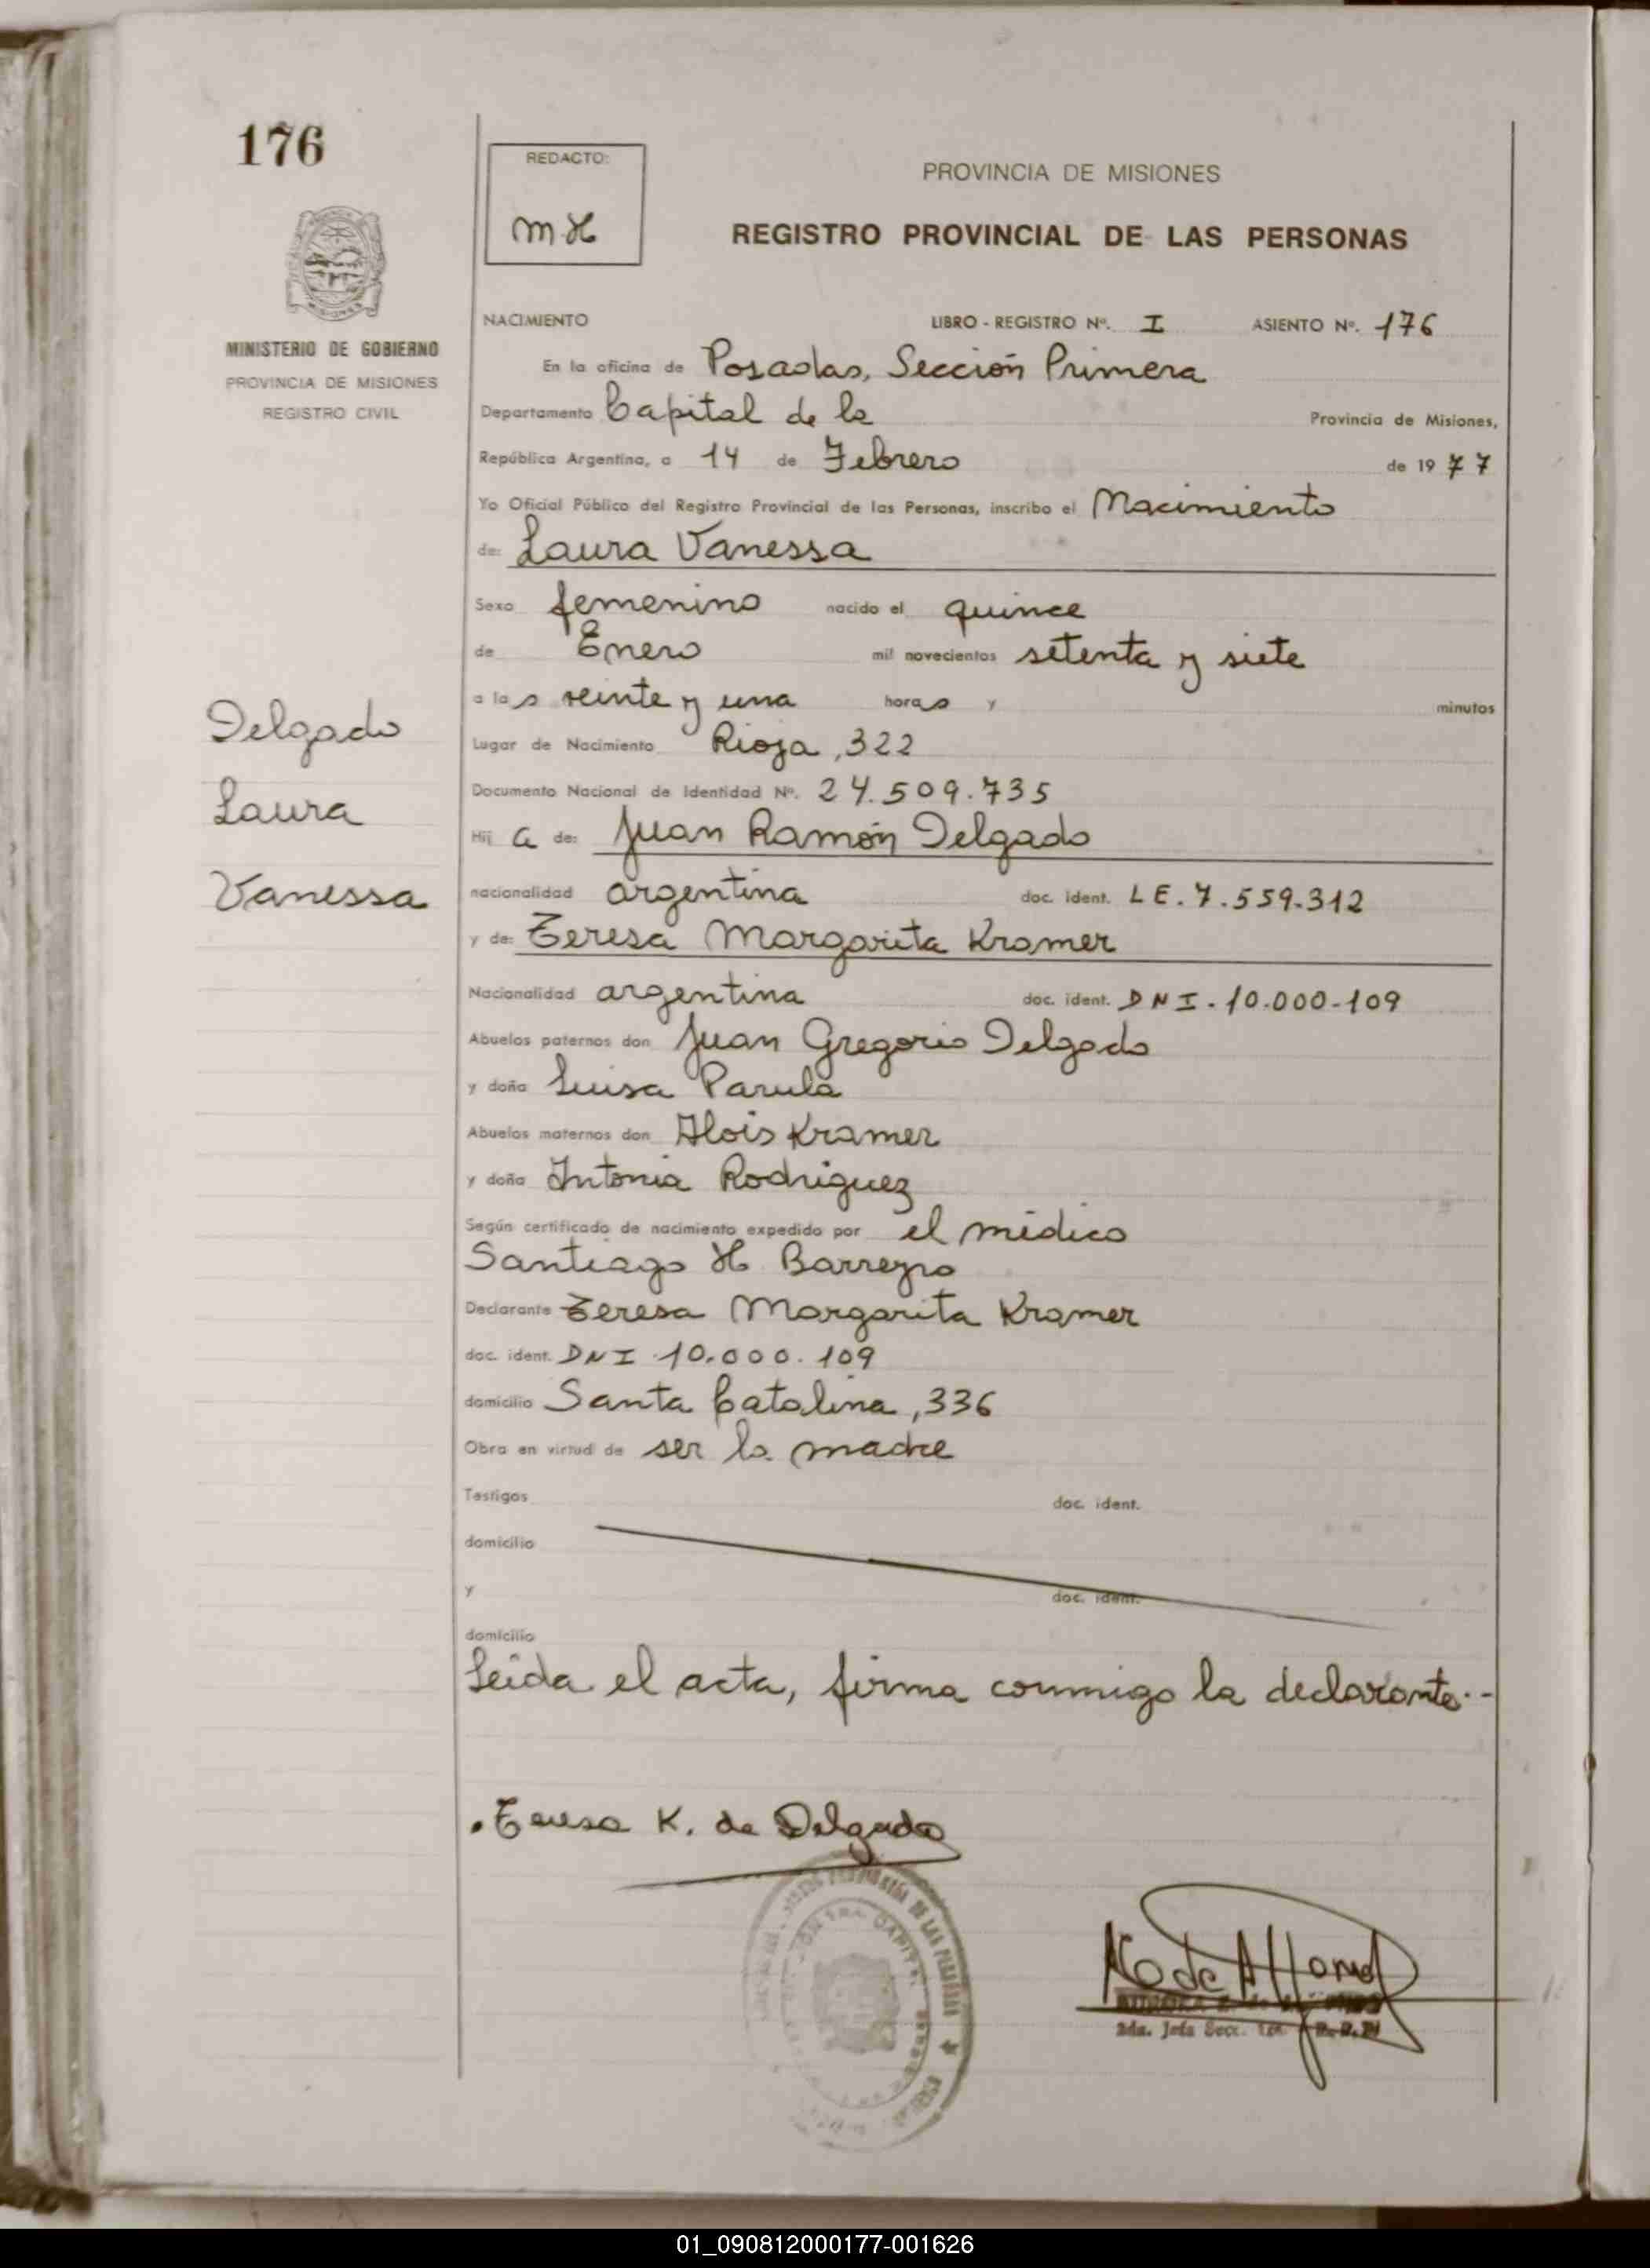 176
REDACTO:
M.H
PROVINCIA DE MISIONES
REGISTRO PROVINCIAL DE LAS PERSONAS
MINISTERIO DE GOBIERNO
PROVINCIA DE MISIONES
REGISTRO CIVIL
NACIMIENTO LIBRO - REGISTRO Nº. I ASIENTO Nº. 176
En la oficina de Posadas, Sección Primera
Departamento Capital de la Provincia de Misiones,
República Argentina, a 14 de Febrero de 1977
Yo Oficial Público del Registro Provincial de las Personas, inscribo el Nacimiento
de: Laura Vanessa
Sexo femenino nacido el quince
de Enero mil novecientos setenta y siete
a las veinte y una horas y minutos
Lugar de Nacimiento Rioja, 322
Documento Nacional de Identidad Nº. 24.509.735
Hij a de: Juan Ramón Delgado
Delgado
Laura
Vanessa
nacionalidad argentina doc. ident. LE. 7.559.312
y de: Teresa Margarita Kramer
Nacionalidad argentina doc. ident. DNI. 10.000-109
Abuelos paternos don Juan Gregorio Delgado
y doña Luisa Parula
Abuelos maternos don Alois Kramer
y doña Antonia Rodriguez
Según certificado de nacimiento expedido por el médico
Santiago H Barreyro
Declarante Teresa Margarita Kramer
doc. ident. DNI 10.000.109
domicilio Santa Catalina, 336
Obra en virtud de ser la madre
Testigos doc. ident.
domicilio
y doc. ident.
domicilio
Leida el acta, firma conmigo la declarante.-
Teresa K. de Delgado
2da. Jefa Secc.
01_090812000177-001626